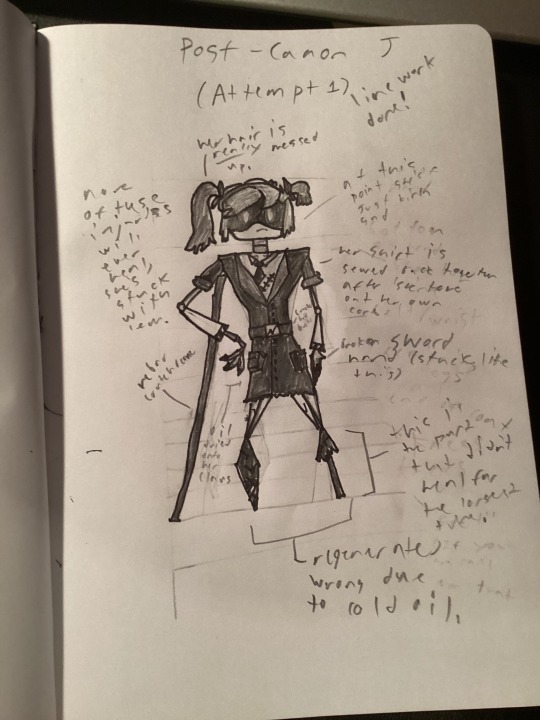 Post-Canon J
(Attempt 1)
line work
done!
her hair is
really messed
up.
none
of these
injuries
will
ever
heal,
she's
stuck
with
them.
at this
point she's
just kinda
sad
her shirt is
sewed back together
after she tore
out her own
core
broken sword
hand (stuck like
this)
oil
dried
onto
her
claws
this is
the part
that didn't
heal for
the longest
time.
regenerated
wrong due
to cold oil.